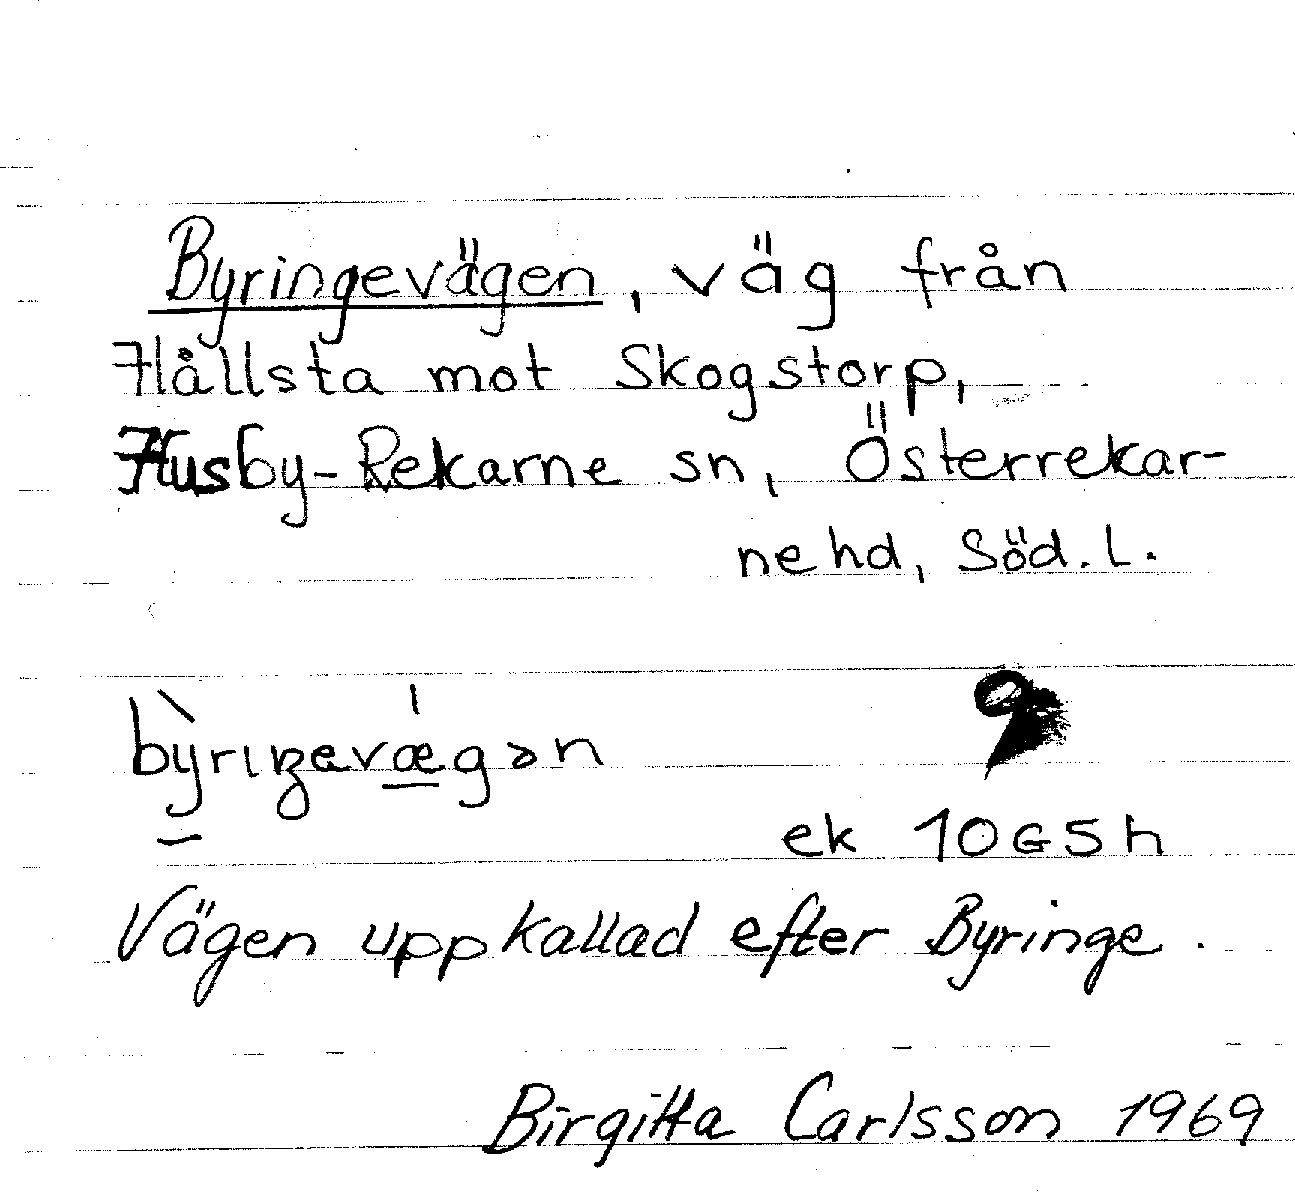 Byringevägen, väg från
Hållsta mot Skogstorp,
Husby-Rekarne sn, Österrekar-
ne hd, Söd. L.
bỳriŋevǽgən
ek 10G5h
Vägen uppkallad efter Byringe.
Birgitta Carlsson 1969